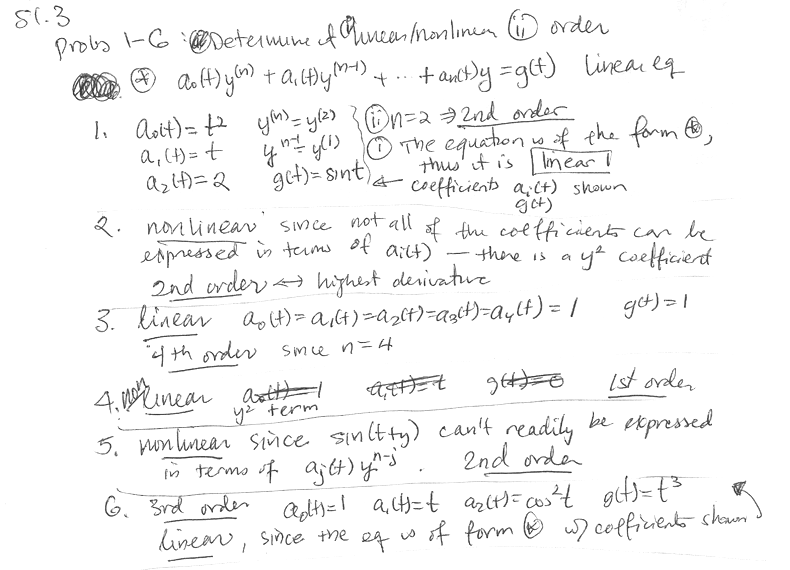 §1.3
Probs 1-6 : Determine if (i) linear/nonlinear (ii) order
* a₀(t)y⁽ⁿ⁾ + a₁(t)y⁽ⁿ⁻¹⁾ + ... + aₙ(t)y = g(t) linear eq
1. a₀(t) = t² y⁽ⁿ⁾ = y⁽²⁾ } (ii) n=2 ⇒ 2nd order
a₁(t) = t yⁿ⁻¹ = y⁽¹⁾ (i) The equation is of the form *,
thus it is linear!
a₂(t) = 2 g(t) = sint ← coefficients aᵢ(t) shown
g(t)
2. nonlinear since not all of the coefficients can be
expressed in terms of aᵢ(t) — there is a y² coefficient
2nd order ↔ highest derivative
3. linear a₀(t) = a₁(t) = a₂(t) = a₃(t) = a₄(t) = 1 g(t) = 1
4th order since n=4
4. nonlinear a₀(t)=1 a₁(t)=t g(t)=0 1st order
y² term
5. nonlinear since sin(t+y) can't readily be expressed
in terms of aⱼ(t) yⁿ⁻ʲ. 2nd order
6. 3rd order a₀(t)=1 a₁(t)=t a₂(t)=cos²t g(t)=t³
linear, since the eq is of form * w) cofficients shown